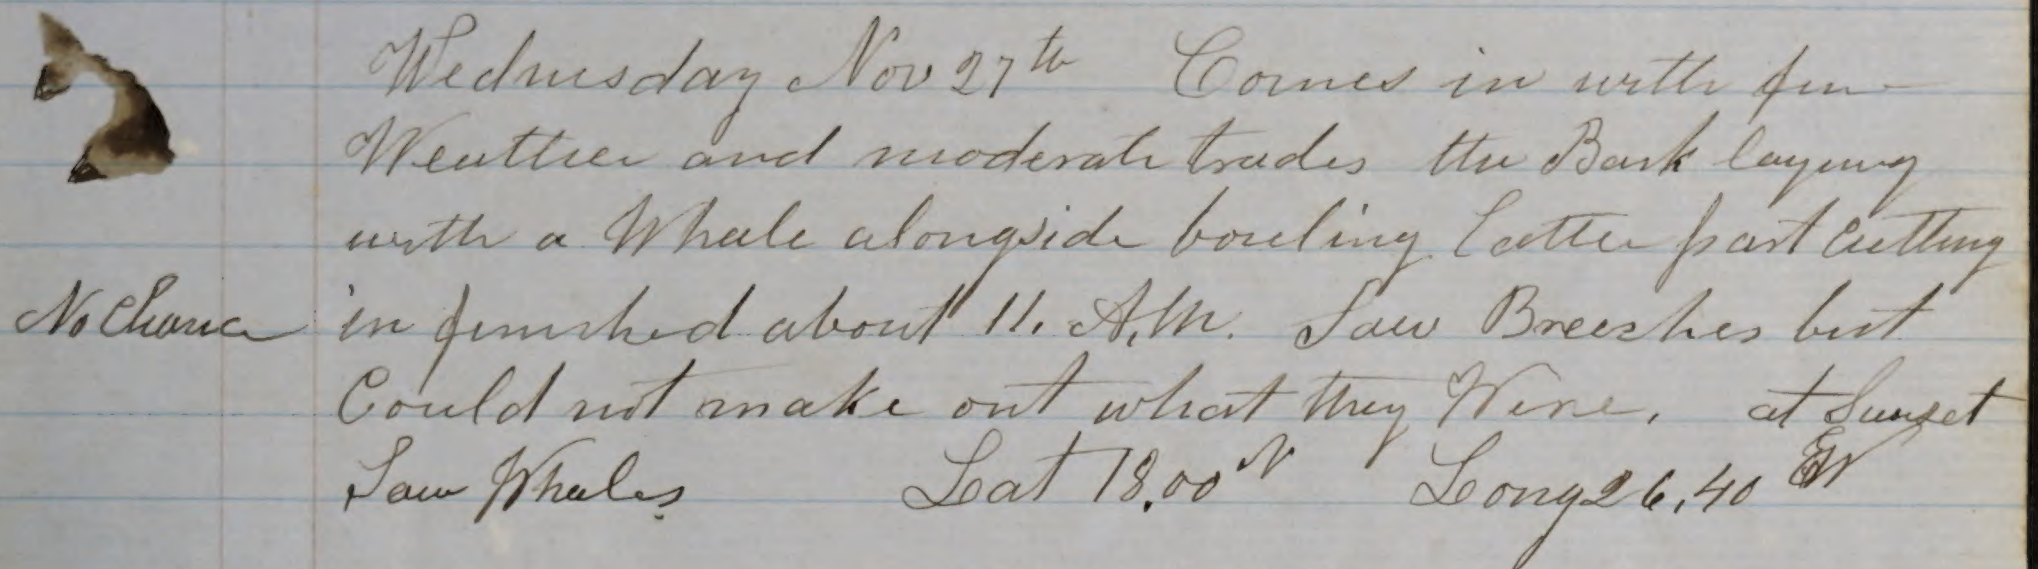 Wednesday Nov 27th Comes in with fine
Weather and moderate trades the Bark laying
with a Whale alongside bouling latter part Cutting
No Chance in finished about 11. A.M. Saw Breeches but
Could not make out what they Were. at Sunset
Saw Whales Lat 18.00 N Long 26.40 W